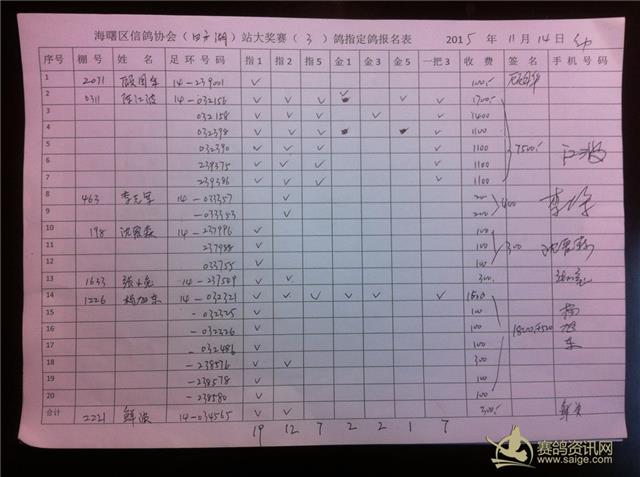 海曙区信鸽协会（ 湖）站大奖赛（ 3 ）鸽指定鸽报名表 2015 年 11 月 14 日
序号 棚 号 姓 名 足 环 号 码 指1 指2 指5 金1 金3 金5 一把3 收 费 签 名 手 机 号 码
1 2011 殷国华 14-239001 √ 100 殷国华
2 0311 江波 14-032156 √ √ √ √ √ √ 1700
3 032158 √ √ √ √ √ 1400
4 032398 √ √ √ √ 1100
5 032390 √ √ √ √ 1100 7500 江波
6 239375 √ √ √ √ 1100
7 239386 √ √ √ √ 1100
8 463 李 14-033357 √ 200 400 李
9 -033353 √ 200
10 198 沈 14-237996 √ 100
11 237988 √ 100 300 沈
12 033755 √ 100
13 1633 张 14-237509 √ √ 300
14 1226 杨旭东 14-032321 √ √ √ √ √ √ 1500
15 -032325 √ 100 杨
16 -032326 √ 100 旭
17 -032486 √ 100 东
18 -238576 √ √ 300
19 -238578 √ 100
20 -238580 √ 100
合计 2221 鲜波 14-034565 √ √ 300 鲜波
19 12 7 2 2 1 7
赛鸽资讯网
www.saige.com